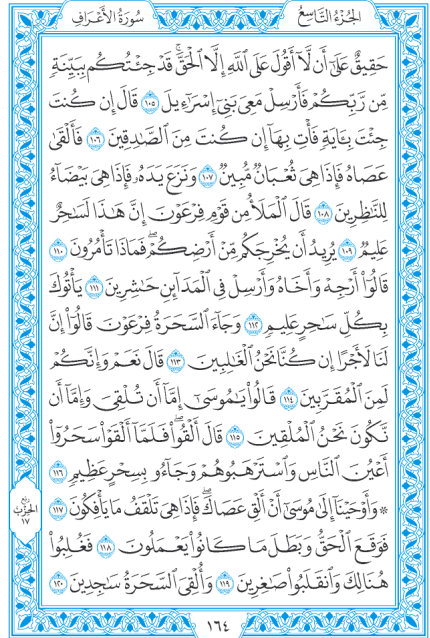 الجُزْءُ التَّاسِعُ
سُورَةُ الأَعْرَافِ
حَقِيقٌ عَلَىٰٓ أَن لَّآ أَقُولَ عَلَى ٱللَّهِ إِلَّا ٱلْحَقَّۚ قَدْ جِئْتُكُم بِبَيِّنَةٍ
مِّن رَّبِّكُمْ فَأَرْسِلْ مَعِىَ بَنِىٓ إِسْرَٰٓءِيلَ ١٠٥ قَالَ إِن كُنتَ
جِئْتَ بِـَٔايَةٍ فَأْتِ بِهَآ إِن كُنتَ مِنَ ٱلصَّٰدِقِينَ ١٠٦ فَأَلْقَىٰ
عَصَاهُ فَإِذَا هِىَ ثُعْبَانٌ مُّبِينٌ ١٠٧ وَنَزَعَ يَدَهُۥ فَإِذَا هِىَ بَيْضَآءُ
لِلنَّٰظِرِينَ ١٠٨ قَالَ ٱلْمَلَأُ مِن قَوْمِ فِرْعَوْنَ إِنَّ هَٰذَا لَسَٰحِرٌ
عَلِيمٌ ١٠٩ يُرِيدُ أَن يُخْرِجَكُم مِّنْ أَرْضِكُمْۖ فَمَاذَا تَأْمُرُونَ ١١٠
قَالُوٓا۟ أَرْجِهْ وَأَخَاهُ وَأَرْسِلْ فِى ٱلْمَدَآئِنِ حَٰشِرِينَ ١١١ يَأْتُوكَ
بِكُلِّ سَٰحِرٍ عَلِيمٍ ١١٢ وَجَآءَ ٱلسَّحَرَةُ فِرْعَوْنَ قَالُوٓا۟ إِنَّ
لَنَا لَأَجْرًا إِن كُنَّا نَحْنُ ٱلْغَٰلِبِينَ ١١٣ قَالَ نَعَمْ وَإِنَّكُمْ
لَمِنَ ٱلْمُقَرَّبِينَ ١١٤ قَالُوا۟ يَٰمُوسَىٰٓ إِمَّآ أَن تُلْقِىَ وَإِمَّآ أَن
نَّكُونَ نَحْنُ ٱلْمُلْقِينَ ١١٥ قَالَ أَلْقُوا۟ۖ فَلَمَّآ أَلْقَوْا۟ سَحَرُوٓا۟
أَعْيُنَ ٱلنَّاسِ وَٱسْتَرْهَبُوهُمْ وَجَآءُو بِسِحْرٍ عَظِيمٍ ١١٦
۞ وَأَوْحَيْنَآ إِلَىٰ مُوسَىٰٓ أَنْ أَلْقِ عَصَاكَۖ فَإِذَا هِىَ تَلْقَفُ مَا يَأْفِكُونَ ١١٧
فَوَقَعَ ٱلْحَقُّ وَبَطَلَ مَا كَانُوا۟ يَعْمَلُونَ ١١٨ فَغُلِبُوا۟
هُنَالِكَ وَٱنقَلَبُوا۟ صَٰغِرِينَ ١١٩ وَأُلْقِىَ ٱلسَّحَرَةُ سَٰجِدِينَ ١٢٠
ربع
الحزب
١٧
١٦٤